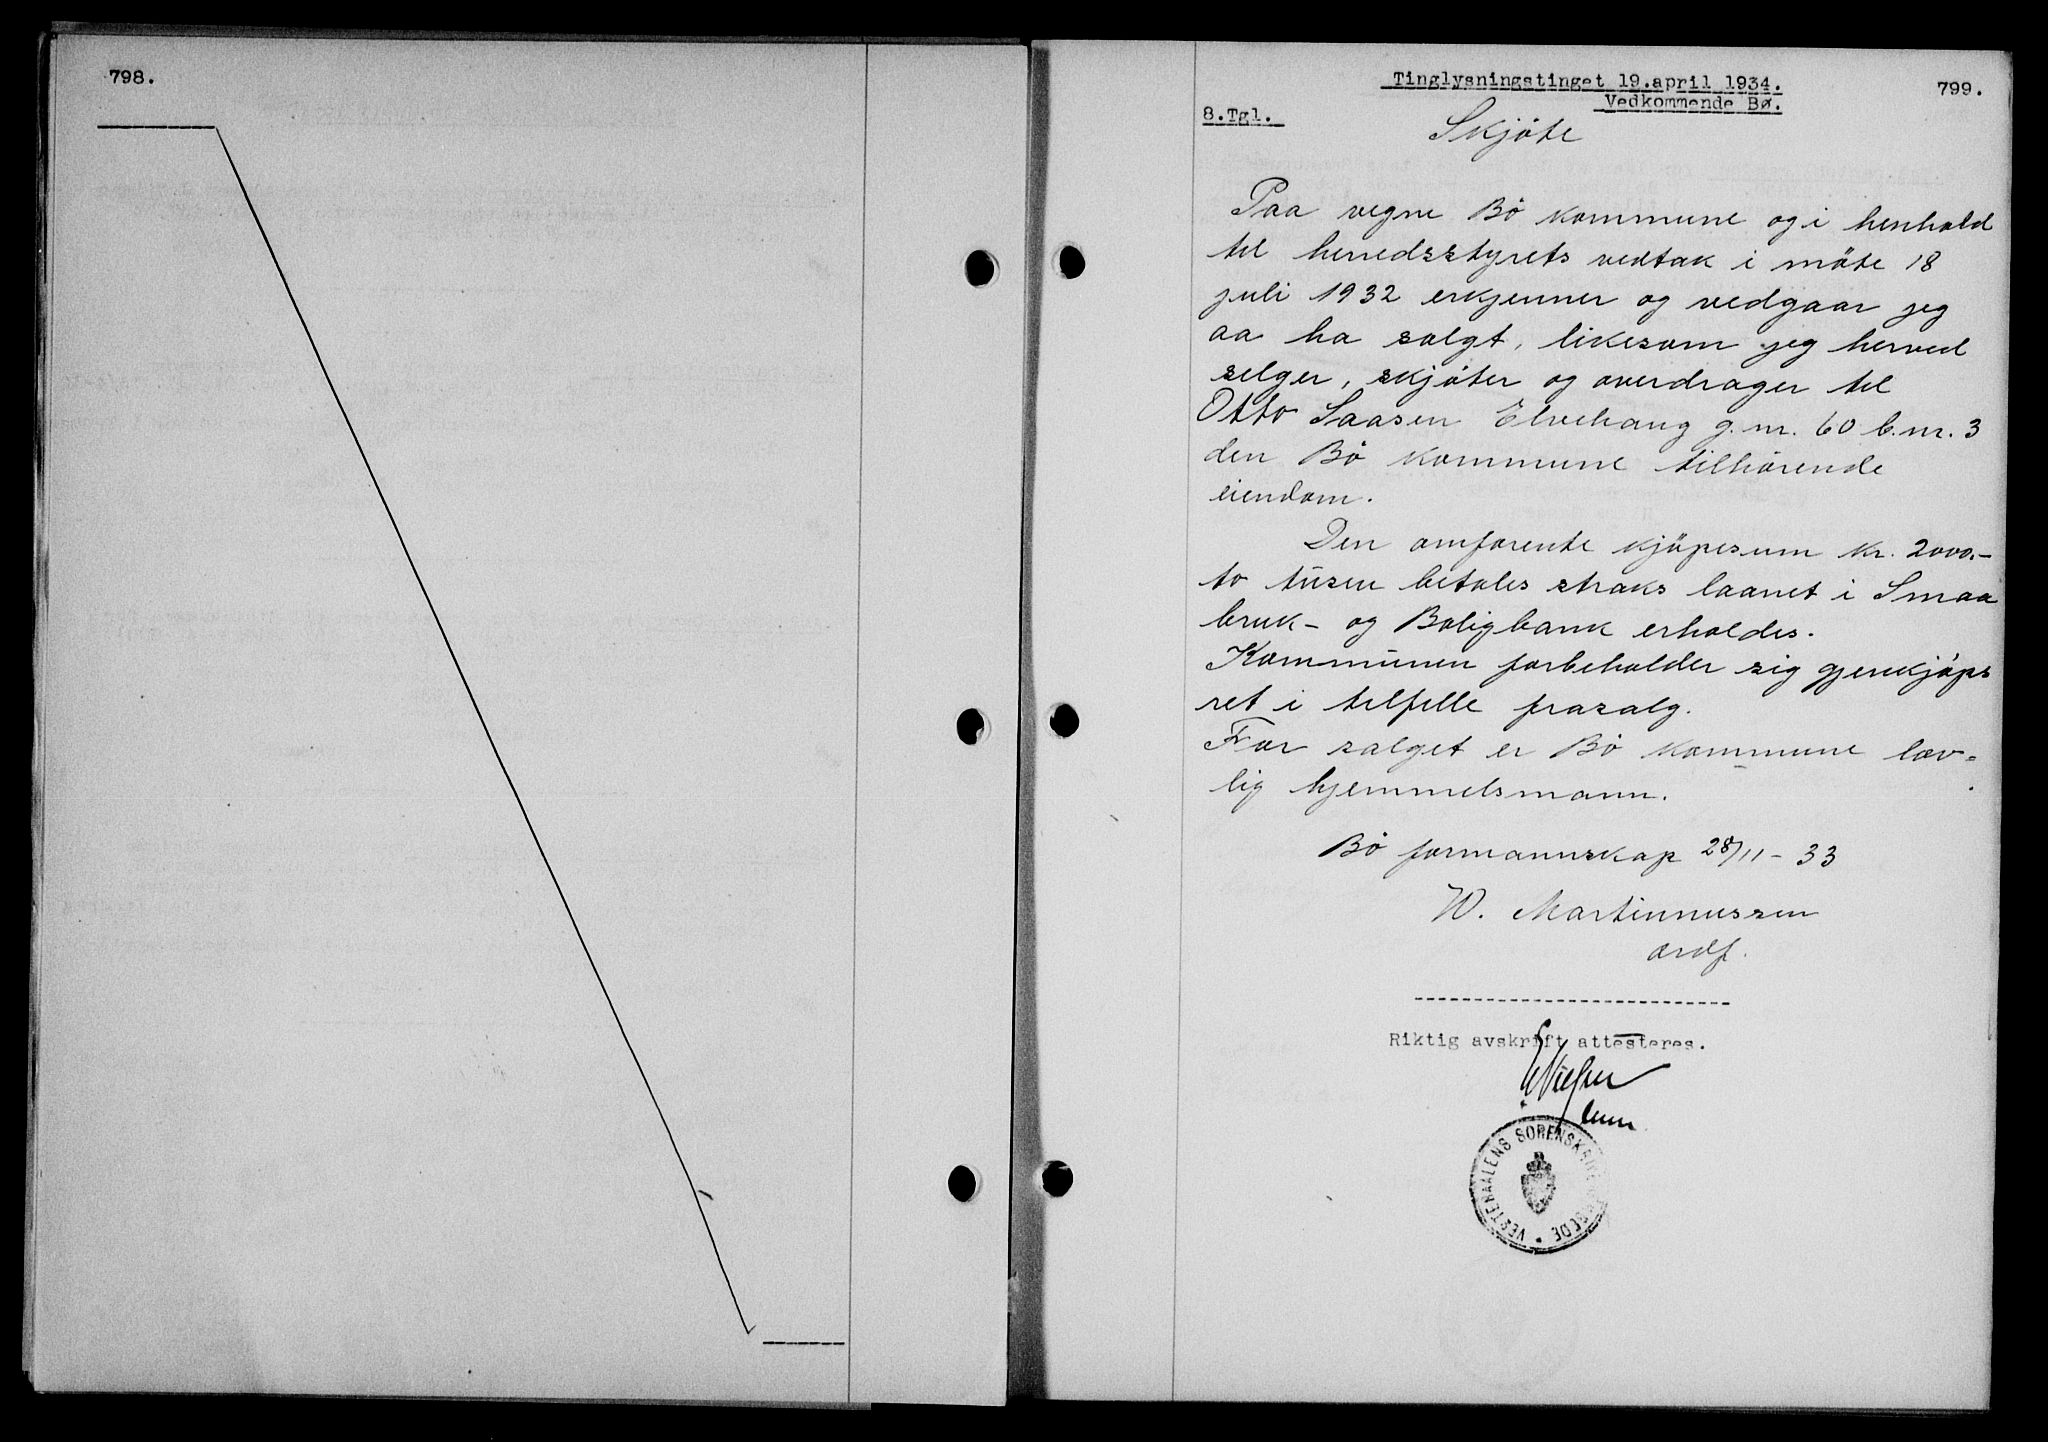 798.
Tinglysningstinget 19.april 1934.
799.
Vedkommende Bø.
8.Tgl.
Skjøte
Paa vegne Bø kommune og i henhold
til herredsstyrets vedtak i møte 18
juli 1932 erkjenner og vedgaar jeg
aa ha solgt, likesom jeg herved
selger, skjøter og overdrager til
Otto Saasen Elvehaug g.nr. 60 b.nr. 3
den Bø kommune tilhørende
eiendom.
Den omforente kjøpesum kr. 2000.-
to tusen betales straks laanet i Smaa
bruk- og Boligbank erholdes.
Kommunen forbeholder sig gjenkjøps
ret i tilfelle frasalg.
For salget er Bø kommune lov=
lig hjemmelsmann.
Bø formannskap 28/11 - 33
W. Martinnussen
ordf.
Riktig avskrift attesteres.
VESTERAALENS SORENSKRIVEREMBEDE